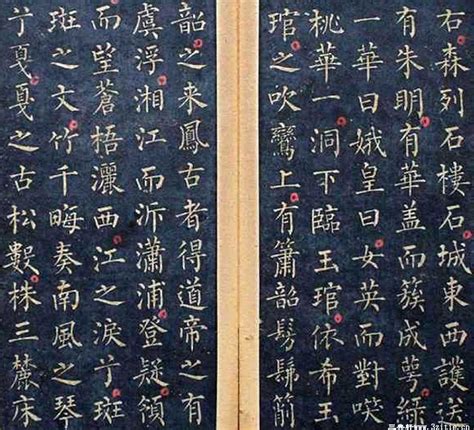 右森列石樓石城東西護送
有朱明有華盖而簇成萼綠
一華曰娥皇曰女英而對
桃華一洞下臨玉琯依希玉
琯之吹鸞上有簫韶髣髴箾
韶之来鳳古者得道帝之有
虞浮湘江而泝瀟浦登疑領
而望蒼梧灑西江之淚亍斑
斑之文竹千晦奏南風之琴
亍戛戛之古松數株三麓床
www.3zitie.cn